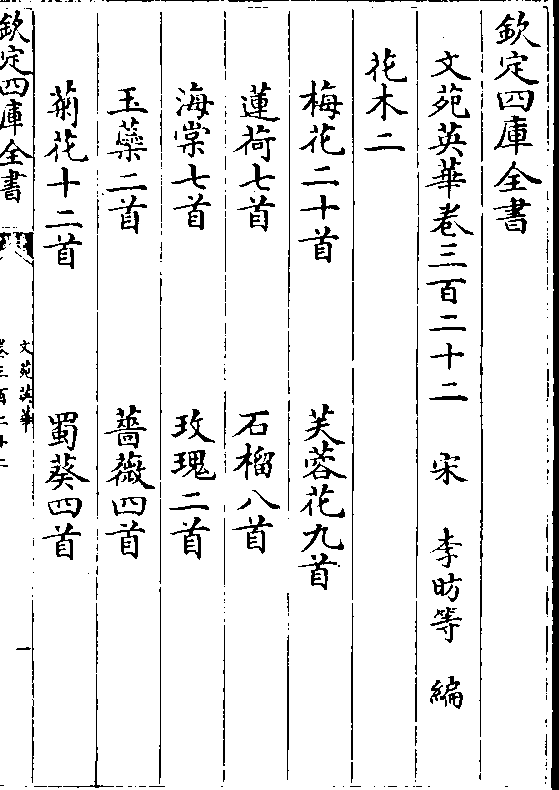 欽定四庫全書
文苑英華卷三百二十二 宋 李昉等 編
花木二
梅花二十首 芙蓉花九首
蓮荷七首 石榴八首
海棠七首 玫瑰二首
玉蘂二首 薔薇四首
菊花十二首 蜀葵四首
欽定四庫全書
文苑英華
卷三百二十二
一